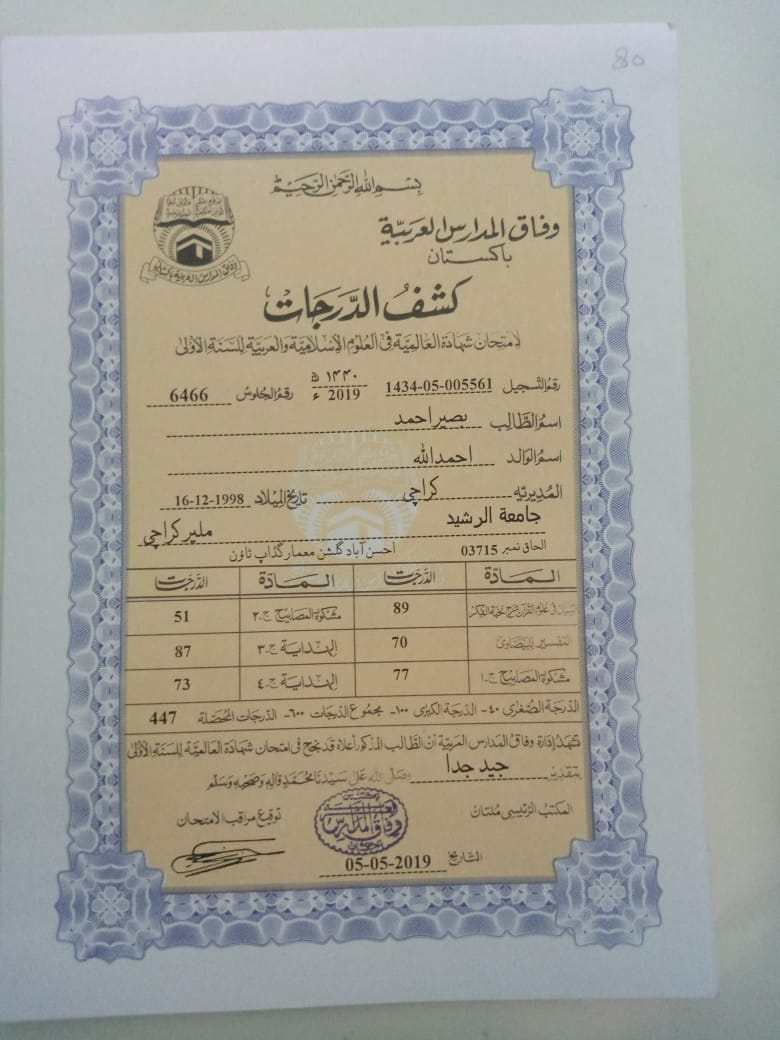 80
بسم الله الرحمن الرحيم
وفاق المدارس العربية
باكستان
وفاق المدارس العربية باكستان
كشف الدرجات
لامتحان شهادة العالمية في العلوم الإسلامية والعربية للسنة الأولى
رقم التسجيل 1434-05-005561 ۱۴۴۰ ھ 2019 ء رقم الجلوس 6466
اسم الطالب بصير احمد
اسم الوالد احمد الله
المديرية كراچی تاريخ الميلاد 16-12-1998
جامعة الرشيد ملير كراچی
الحاق نمبر 03715 احسن آباد گلشن معمار گڈاپ ٹاون
المادة الدرجات المادة الدرجات
التبيان في علوم القرآن شرح نخبة الفكر 89 مشكوة المصابيح ج۔۲ 51
التفسير للبيضاوى 70 الهداية ج۔۳ 87
مشكوة المصابيح ج۔۱ 77 الهداية ج۔٤ 73
الدرجة الصغرى ٤٠- الدرجة الكبرى ١٠٠- مجموع الدرجات ٦٠٠- الدرجات المحصلة 447
تشهد إدارة وفاق المدارس العربية أن الطالب المذكور أعلاه قد نجح في امتحان شهادة العالمية للسنة الأولى
بتقدير جيد جدا وصلى الله على سيدنا محمد وآله وصحبه وسلم
المكتب الرئيسي ملتان توقيع مراقب الامتحان
وفاق المدارس
التاريخ 05-05-2019